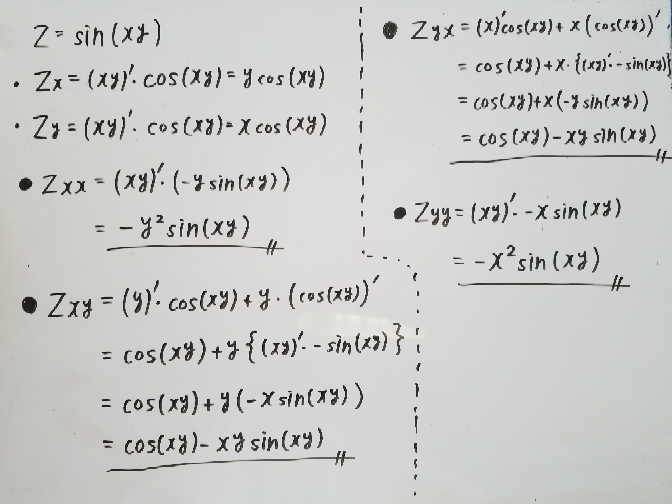 Z = sin(xy)
• Zx = (xy)′· cos(xy) = y cos(xy)
• Zy = (xy)′· cos(xy) = x cos(xy)
● Zxx = (xy)′· (-y sin(xy))
= -y² sin(xy)
● Zxy = (y)′· cos(xy) + y · (cos(xy))′
= cos(xy) + y {(xy)′· - sin(xy)}
= cos(xy) + y (-x sin(xy))
= cos(xy) - xy sin(xy)
● Zyx = (x)′cos(xy) + x (cos(xy))′
= cos(xy) + x · {(xy)′· - sin(xy)}
= cos(xy) + x (-y sin(xy))
= cos(xy) - xy sin(xy)
● Zyy = (xy)′· - x sin(xy)
= -x² sin(xy)